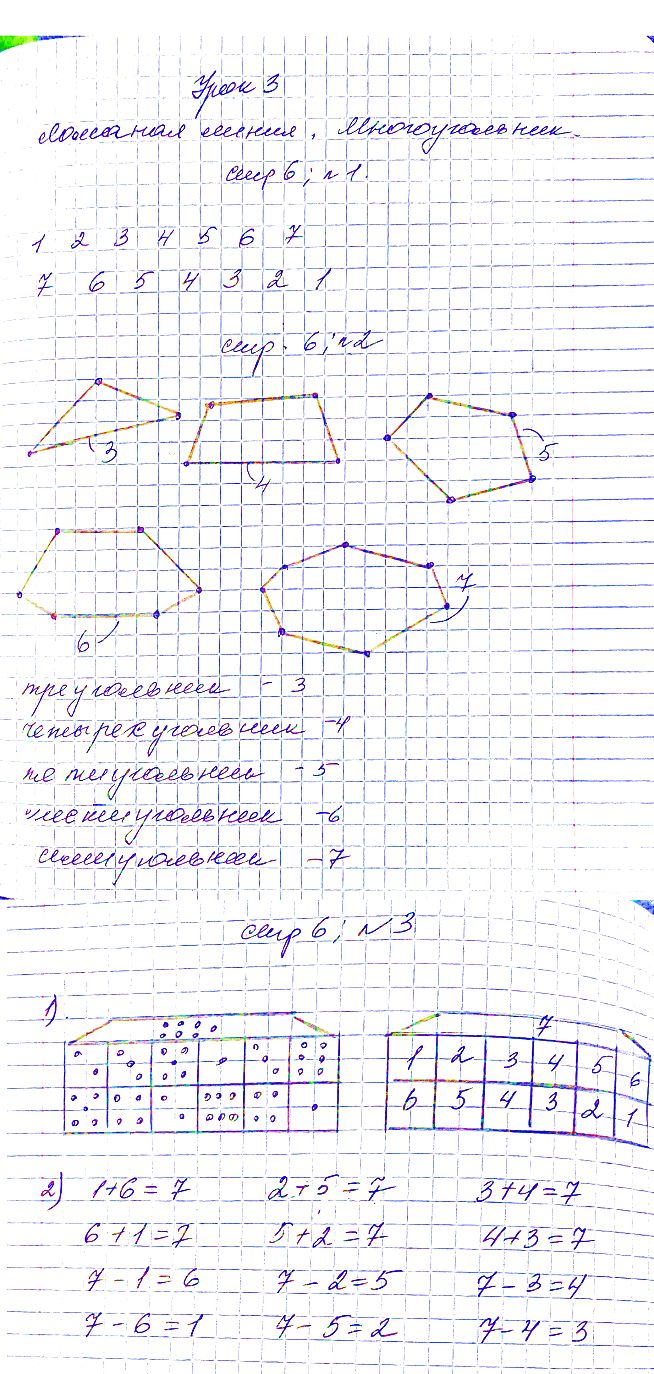 Урок 3
Ломаная линия. Многоугольник.
стр 6; №1.
1 2 3 4 5 6 7
7 6 5 4 3 2 1
стр. 6; №2
3 4 5
6 7
треугольник - 3
четырехугольник - 4
пятиугольник - 5
шестиугольник - 6
семиугольник - 7
стр 6; №3
1) 7
1 2 3 4 5 6
6 5 4 3 2 1
2) 1+6=7 2+5=7 3+4=7
6+1=7 5+2=7 4+3=7
7-1=6 7-2=5 7-3=4
7-6=1 7-5=2 7-4=3